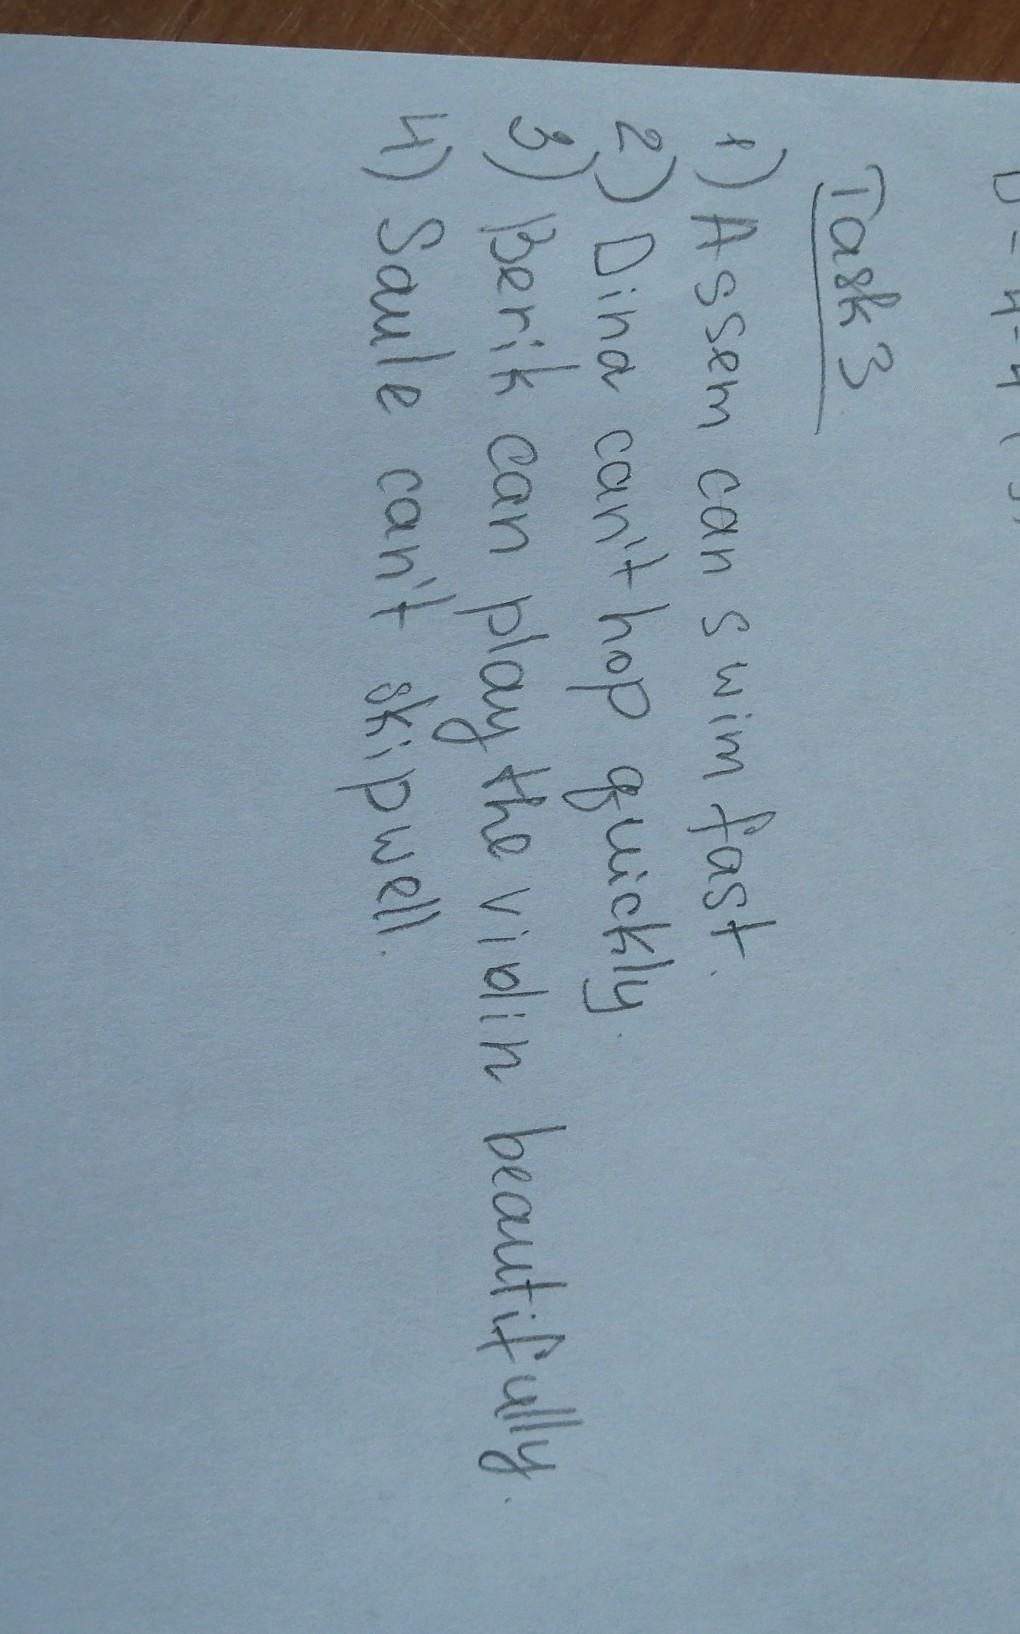 Task 3
1) Assem can swim fast.
2) Dina can't hop quickly.
3) Berik can play the violin beautifully.
4) Saule can't skip well.